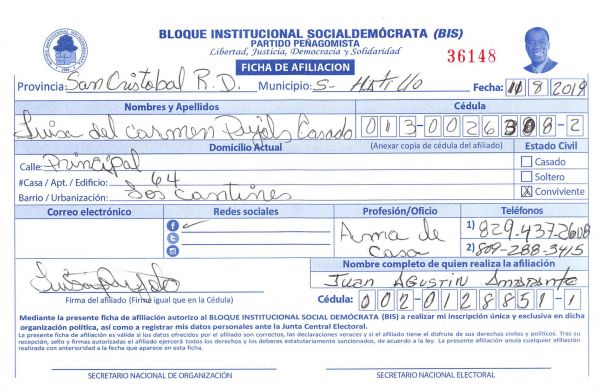 BLOQUE INSTITUCIONAL SOCIALDEMÓCRATA (BIS)
PARTIDO PEÑAGOMISTA
Libertad, Justicia, Democracia y Solidaridad
36148
FICHA DE AFILIACION
Provincia: San Cristobal R.D. Municipio: S- HATILLO Fecha: 11/8/2019
Nombres y Apellidos Cédula
Luisa del carmen Pujols Casado 013-0026308-2
Domicilio Actual (Anexar copia de cédula del afiliado) Estado Civil
Calle: Principal Casado
#Casa / Apt. / Edificio: 64 Soltero
Barrio / Urbanización: Los X Conviviente
Correo electrónico Redes sociales Profesión/Oficio Teléfonos
Ama de 1) 829-437-2608
Casa 2) 809-288-3415
Nombre completo de quien realiza la afiliación
Luisa Pujols JUAN AGUSTIN Amarante
Firma del afiliado (Firme igual que en la Cédula) Cédula: 002-0128851-1
Mediante la presente ficha de afiliación autorizo al BLOQUE INSTITUCIONAL SOCIAL DEMÓCRATA (BIS) a realizar mi inscripción única y exclusiva en dicha
organización política, así como a registrar mis datos personales ante la Junta Central Electoral.
La presente ficha de afiliación es válida si los datos ofrecidos por el afiliado son correctos, las declaraciones veraces y si el afiliado tiene el disfrute de sus derechos civiles y políticos. Tras su
recepción, sello y firmas autorizadas el afiliado ejercerá todos los derechos y los deberes estatutariamente sancionados, de acuerdo a la ley. La presente afiliación anula cualquier afiliación
realizada con anterioridad a la fecha que aparece en esta ficha.
SECRETARIO NACIONAL DE ORGANIZACIÓN SECRETARIO NACIONAL ELECTORAL